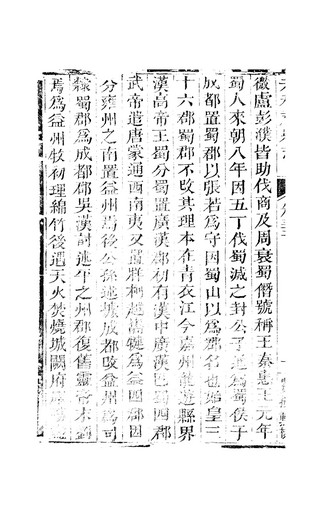 微盧彭濮皆助伐商及周衰蜀僭號稱王秦惠王元年
蜀人來朝八年因五丁伐蜀滅之封公子通為蜀侯于
成都置蜀郡以張若為守因蜀山以為郡名也始皇三
十六郡蜀郡不改其理本在青衣江今嘉州龍遊縣界
漢高帝王蜀分蜀置廣漢郡初有漢中廣漢巴蜀四郡
武帝遣唐蒙通西南夷又置牂柯越嶲犍為益四郡因
分雍州之南置益州焉後公孫述據成都改益州為司
隸蜀郡為成都郡吳漢討述平之州郡復舊靈帝末劉
焉為益州牧初理綿竹後遭天火焚燒城闕府